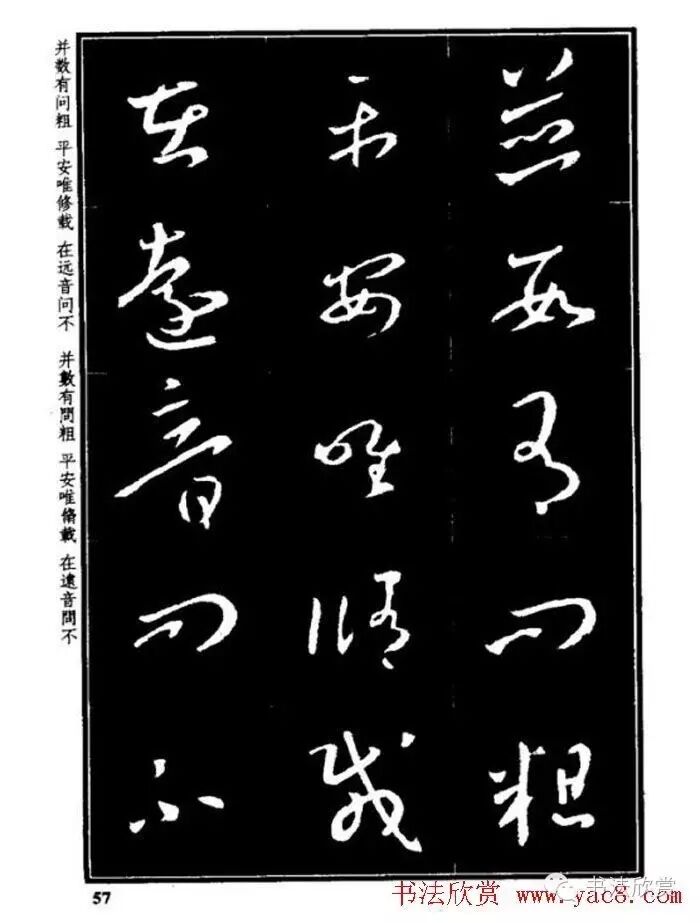 并数有问粗
平安唯修载
在远音问不
并数有问粗 平安唯修载 在远音问不
并數有問粗 平安唯脩載 在遠音問不
57
书法欣赏 www.yac8.com
书法欣赏